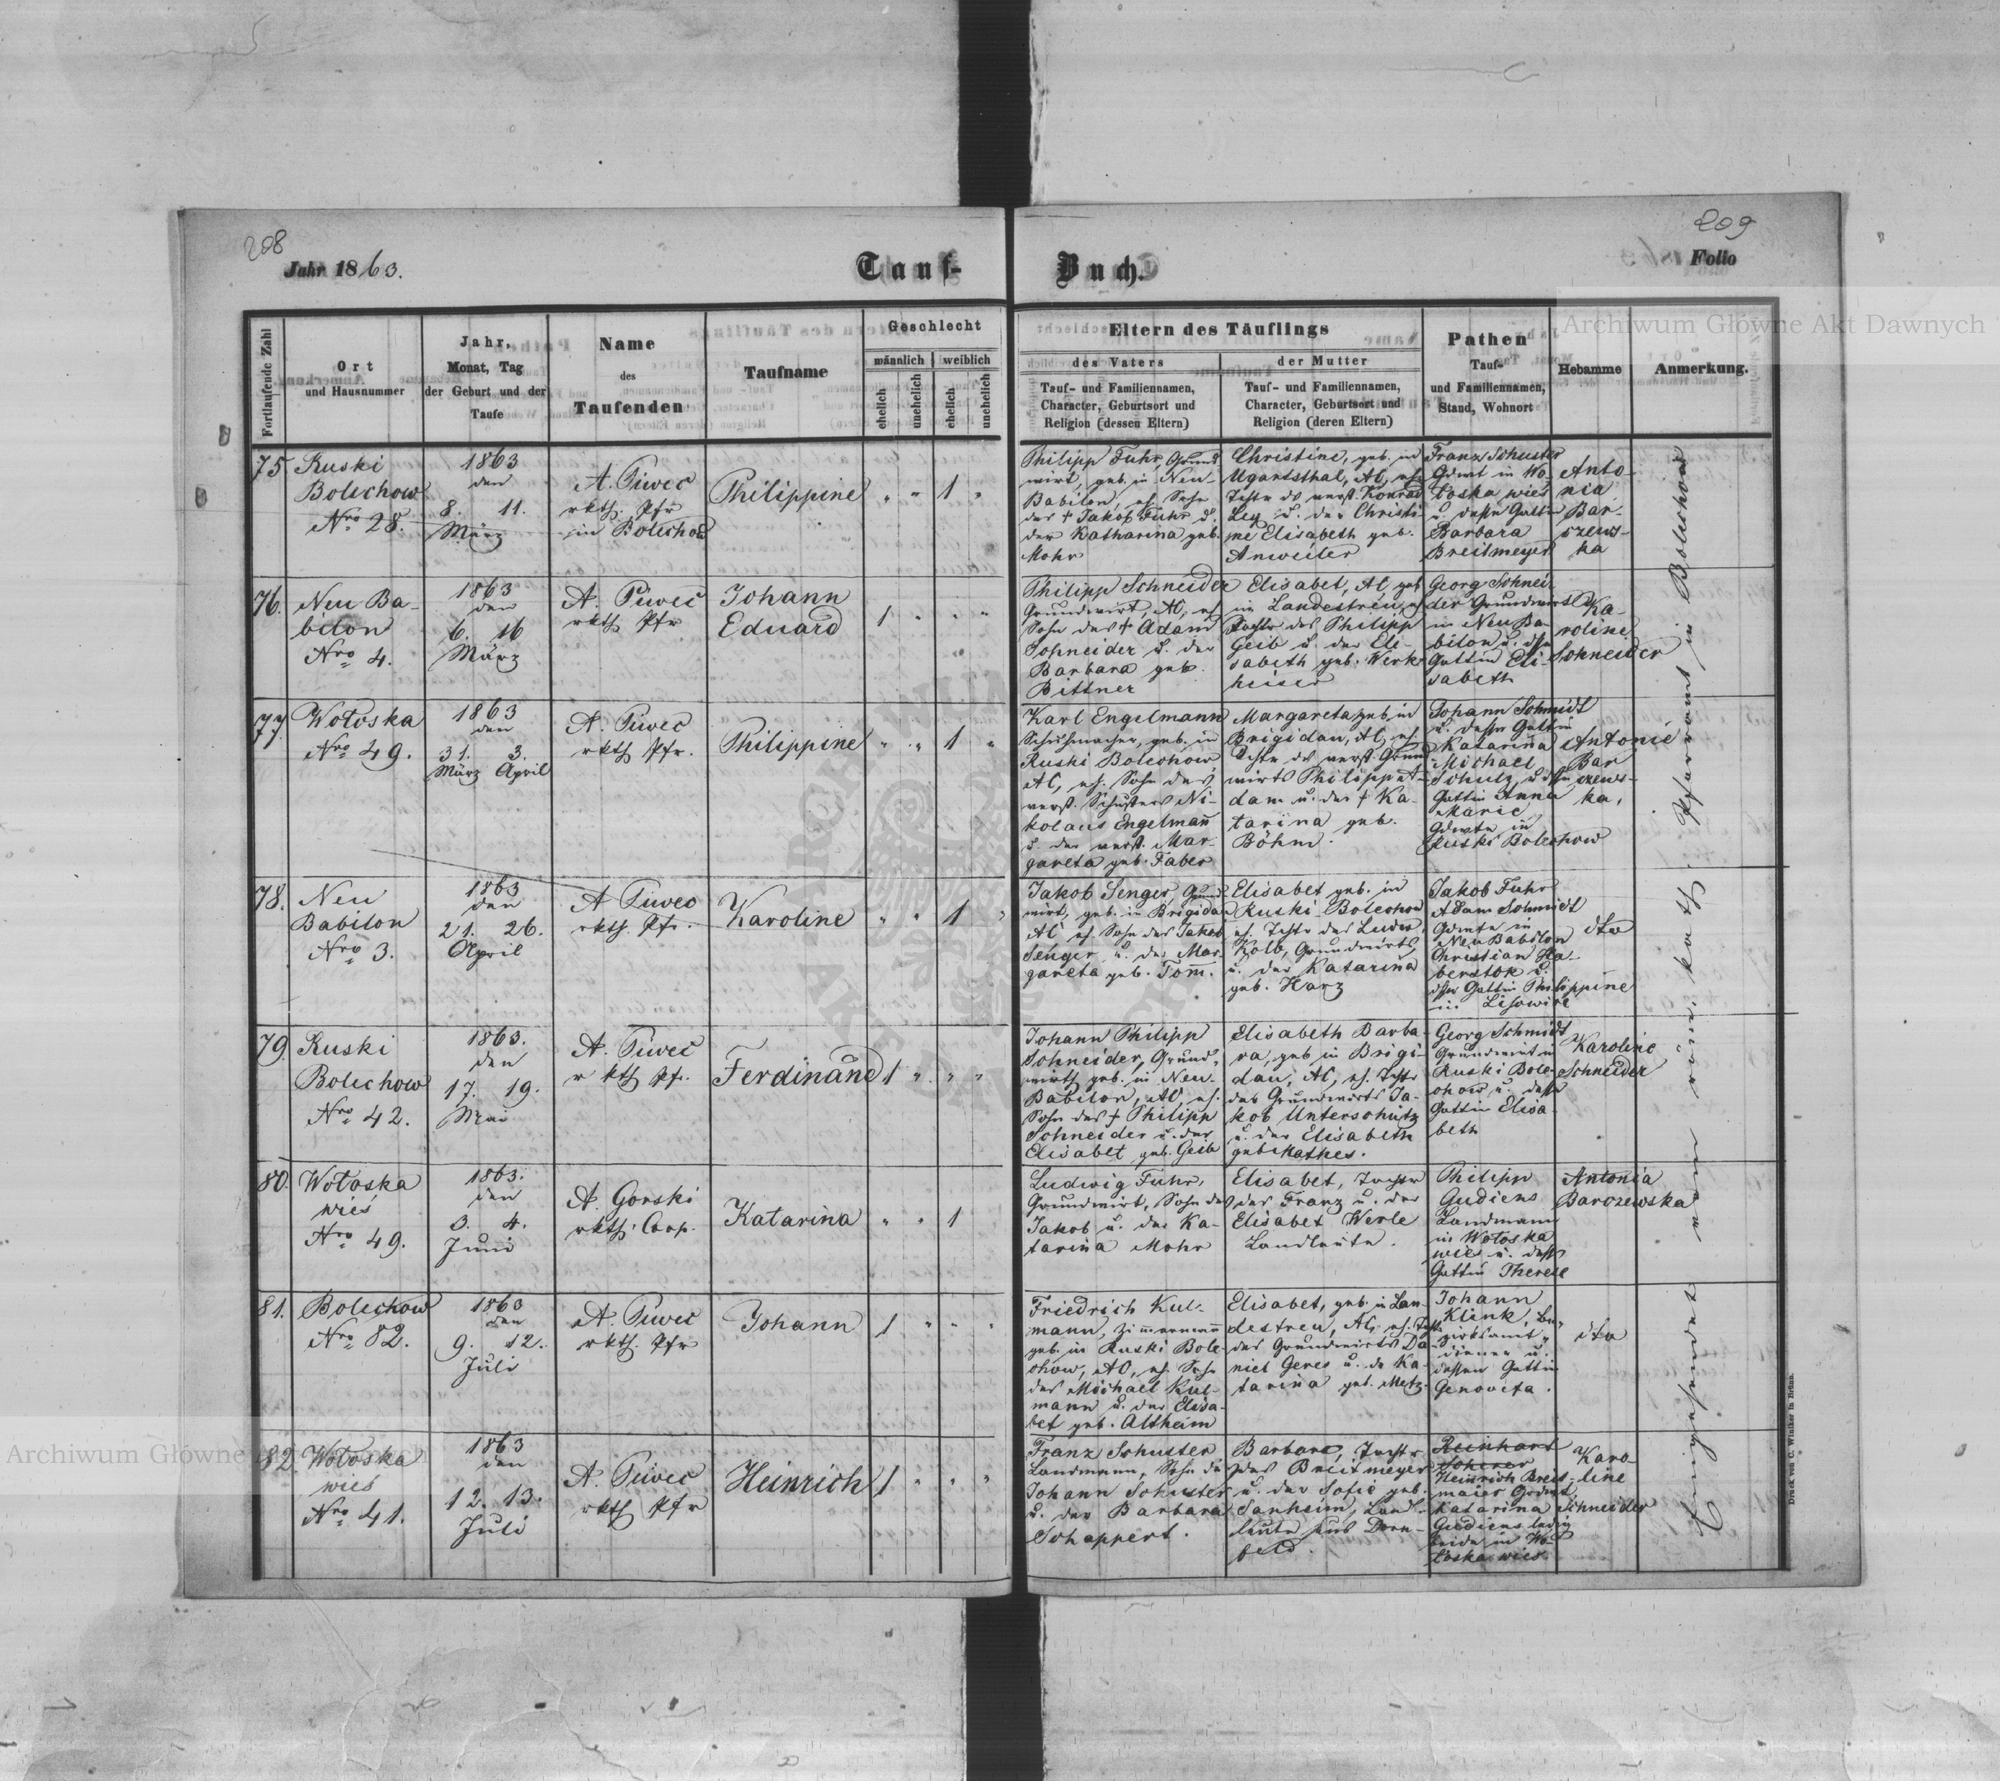 208
209
Jahr 1863.
Tauf-
Buch.
Folio
Archiwum Główne Akt Dawnych
Fortlaufende Zahl
Ort
und Hausnummer
Jahr,
Monat, Tag
der Geburt und der
Taufe
Name
des
Taufenden
Taufname
Geschlecht
männlich
weiblich
ehelich
unehelich
ehelich
unehelich
Eltern des Täuflings
des Vaters
Tauf- und Familiennamen,
Character, Geburtsort und
Religion (dessen Eltern)
der Mutter
Tauf- und Familiennamen,
Character, Geburtsort und
Religion (deren Eltern)
Pathen
Tauf-
und Familiennamen,
Stand, Wohnort
Hebamme
Anmerkung.
75.
Ruski
Bolechow
Nro 28.
1863
den
8. 11.
März
A. Piwec
rkth. Pfr
in Bolechow
Philippine
" " 1 "
Philipp Fuhr, Grund
wirt, geb. in Neu-
Babilon, eh. Sohn
des † Jakob Fuhr u.
der Katharina geb.
Mohr
Christine, geb. in
Ugartsthal, AC, eh.
Tchtr ds verst. Konrad
Ley u. der Christi-
ne Elisabeth geb.
Anweiler
Franz Schuster
Gdwrt in Wo-
łoska wieś
u. dessen Gattin
Barbara
Breitmeyer
Anto-
nia
Bar-
szews-
ka
76.
Neu Ba-
bilon
Nro 4.
1863
den
6. 16
März
A. Piwec
rkth. Pfr
Johann
Eduard
1 " " "
Philipp Schneider
Grundwirt, AC, eh.
Sohn des † Adam
Schneider u. der
Barbara geb.
Bittner
Elisabet, AC, geb
in Landestreu, eh
Tochtr des Philipp
Geib u. der Eli-
sabeth geb. Werk-
heiser
Georg Schnei-
der Grundwirt
in Neu Ba-
bilon u. dssn
Gattin Eli-
sabeth
Ka-
roline
Schneider
77.
Wołoska
Nro 49.
1863
den
31. 3.
März April
A. Piwec
rkth Pfr.
Philippine
" " 1 "
Karl Engelmann
Schuhmacher, geb. in
Ruski Bolechow
AC, eh. Sohn des
verst. Schusters Ni-
kolaus Engelmann
u. der verst. Mar-
gareta geb. Faber
Margareta geb in
Brigidau, AC, eh.
Tchtr ds verst. Grund
wirts Philipp A-
dam u. der † Ka-
tarina geb.
Böhm.
Johann Schmidt
u. dessen Gattin
Katarina
Michael
Schulz, u. dssn
Gattin Anna
Marie
Gdwrte in
Ruski Bolechow
Antonie
Bar
szews-
ka.
78.
Neu
Babilon
Nro 3.
1863
den
21. 26.
April
A Piwec
rkth. Pfr.
Karoline
" " 1 "
Jakob Senger, Grund
wirt, geb. in Brigidau
AC eh. Sohn des Jakob
Senger u. der Mar-
gareta geb. Tom.
Elisabet geb. in
Ruski Bolechow
eh. Tchtr des Ludw.
Kolb, Grundwirts
u. der Katarina
geb. Harz
Jakob Fuhr
Adam Schmidt
Gdwrte in
Neu Babilon
Christian Ha-
berstok u.
dssn Gattin Philippine
in Lisowice
dto
79
Ruski
Bolechow
Nro 42.
1863.
den
17. 19.
Mai
A. Piwec
r kth Pfr.
Ferdinand
1 " " "
Johann Philipp
Schneider, Grund-
wirth geb. in Neu-
Babilon, AC, eh.
Sohn des † Philipp
Schneider u. der
Elisabet geb. Geib
Elisabeth Barba-
ra, geb in Brigi-
dau, AC, eh. Tchtr
des Grundwirts Ja-
kob Unterschütz
u. der Elisabeth
geb Mathes.
Georg Schmidt
Grundwirt in
Ruski Bole-
chow u. dessn
Gattin Elisa-
beth
Karoline
Schneider
80.
Wołoska
wieś
Nro 49.
1863.
den
3. 4.
Juni
A. Gorski
rkth. Coop.
Katarina
" " 1
Ludwig Fuhr,
Grundwirt, Sohn des
Jakob u. der Ka-
tarina Mohr
Elisabet, Tochter
des Franz u. der
Elisabet Werle
Landleute.
Philipp
Gudiens
Landmann
in Wołoska
wieś u. dessn
Gattin Therese
Antonia
Barszewska
81.
Bolechow
Nro 82.
1863
den
9. 12.
Juli
A. Piwec
rkth. Pfr
Johann
1 " " "
Friedrich Kul-
mann, Zimmermann
geb. in Ruski Bole-
chow, AC, eh. Sohn
des Michael Kul-
mann u. der Elisa-
bet geb. Altheim
Elisabet, geb. in Lan-
destreu, AC, eh. Tchtr
des Grundwirts Da-
niel Geres u. de Ka-
tarina geb. Metz.
Johann
Klink, Be-
zirksamt-
diener u.
dessen Gattin
Genovefa.
dto
82.
Wołoska
wieś
Nro 41.
1863
den
12. 13.
Juli
A. Piwec
rkth Pfr
Heinrich
1 " " "
Franz Schuster
Landmann, Sohn de
Johann Schuster
u. der Barbara
Schappert.
Barbara, Tochtr
des Breitmeyer
u. der Sofie geb.
Sanheim, Land-
leute aus Dorn-
feld.
Reinhart
Scherer
Heinrich Breit-
maier Grdwrt,
Katarina
Gudiens ledig
beide in Wo-
łoska wieś
Karo-
line
Schneider
Eingesendet vom röm. kath. Pfarramt in Bolechow
Druck von C. Winiker in Brünn.
Archiwum Główne Akt Dawnych